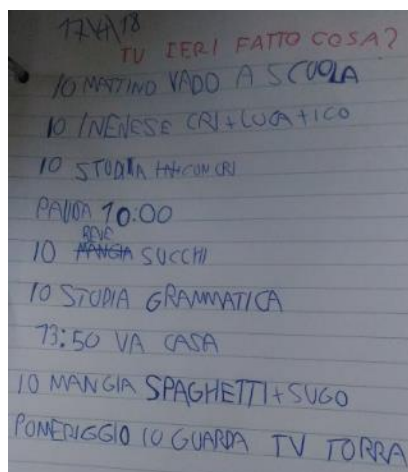 TU IERI FATTO COSA?
IO MATTINO VADO A SCUOLA
IO INENESE CRI+LUCA+ICO
IO STUDIA CON CRI
PAUDA 10:00
BEVE
IO MANGIA SUCCHI
IO STUDIA GRAMMATICA
13:50 VA CASA
IO MANGIA SPAGHETTI+SUGO
POMERIGGIO IO GUARDA TV TORRA